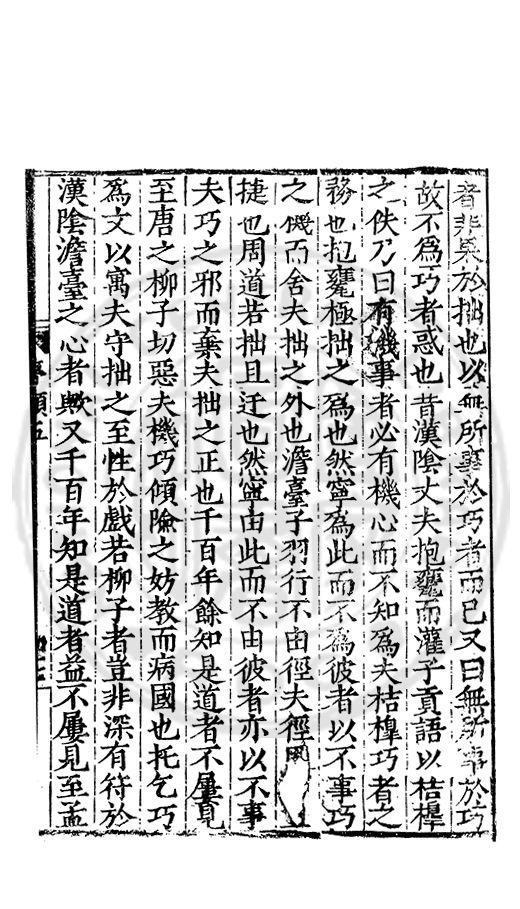 者非果於拙也以無所事於巧者而已又曰無所事於巧
故不為巧者惑也昔漢陰丈夫抱甕而灌子貢語以桔槹
之佚乃曰有機事者必有機心而不知為夫桔槹巧者之
務也抱甕極拙之為也然寧為此而不為彼者以不事巧
之機而舍夫拙之外也澹臺子羽行不由徑夫徑
捷也周道若拙且迂也然寧由此而不由彼者亦以不事
夫巧之邪而棄夫拙之正也千百年餘知是道者不屢見
至唐之柳子切惡夫機巧傾險之妨教而病國也托乞巧
為文以寓夫守拙之至性於戲若柳子者豈非深有符於
漢陰澹臺之心者歟又千百年知是道者益不屢見至孟